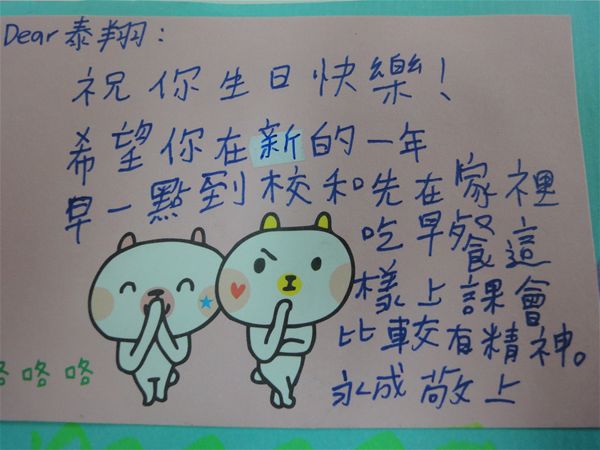 Dear 泰翔:
祝你生日快樂!
希望你在新的一年
早一點到校和先在家裡
吃早餐這
樣上課會
比較有精神。
永成敬上
咯咯咯